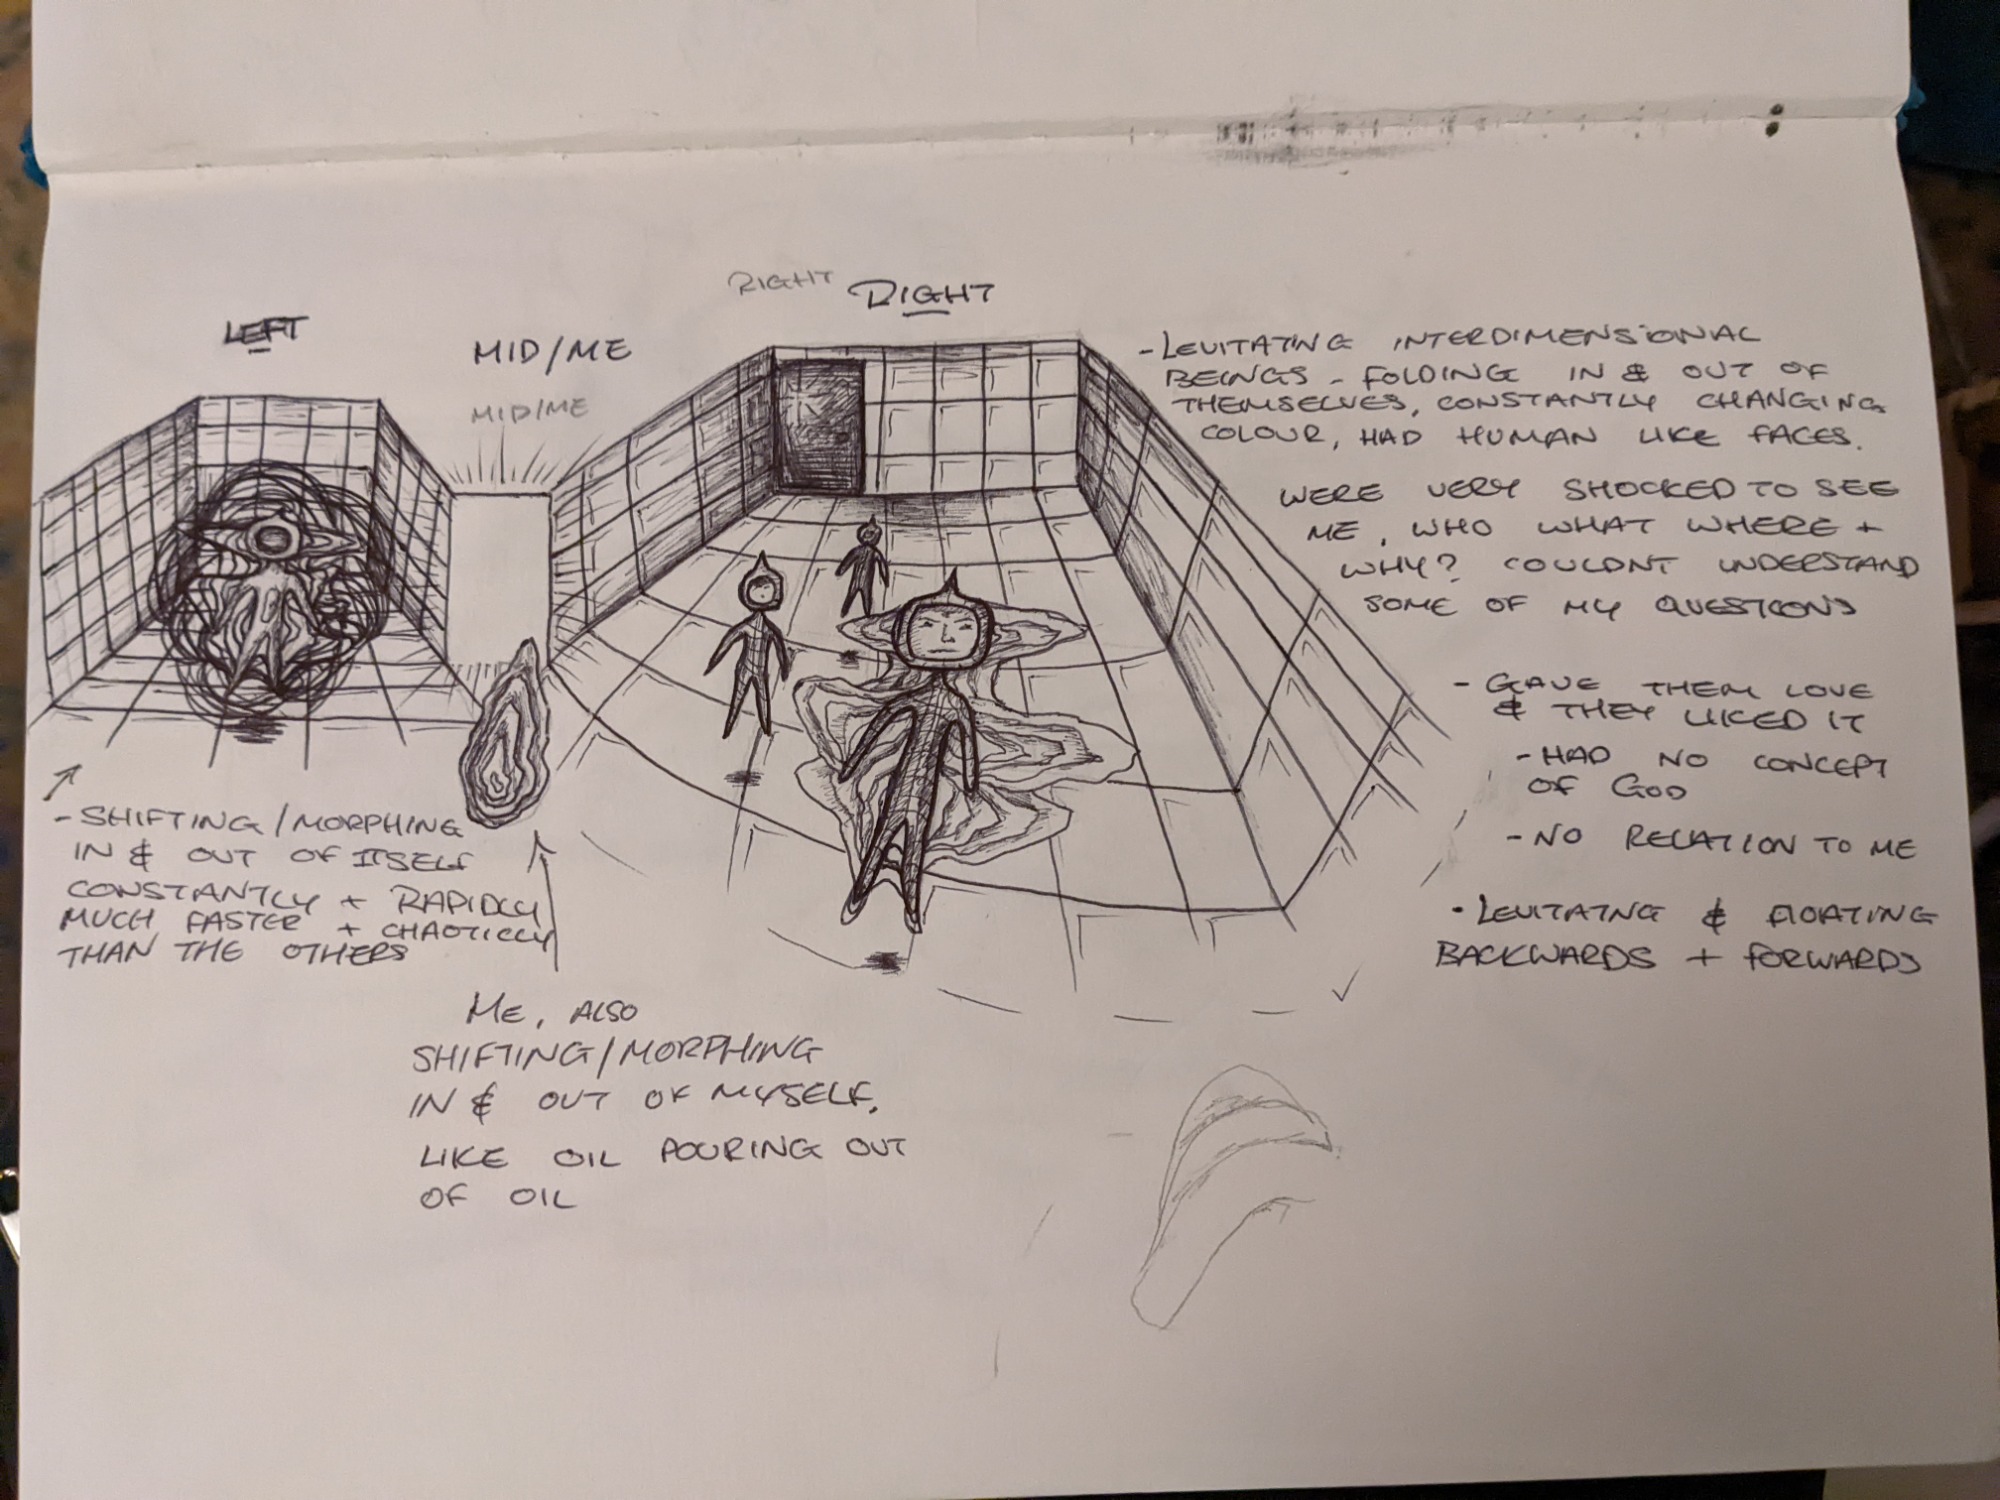 LEFT
MID/ME
MID/ME
RIGHT RIGHT
- LEVITATING INTERDIMENSIONAL
BEINGS - FOLDING IN & OUT OF
THEMSELVES, CONSTANTLY CHANGING
COLOUR, HAD HUMAN LIKE FACES.
WERE VERY SHOCKED TO SEE
ME, WHO WHAT WHERE +
WHY? COULDNT UNDERSTAND
SOME OF MY QUESTIONS
- GAVE THEM LOVE
& THEY LIKED IT
- HAD NO CONCEPT
OF GOD
- NO RELATION TO ME
- LEVITATNG & FLOATING
BACKWARDS + FORWARDS
- SHIFTING/MORPHING
IN & OUT OF ITSELF
CONSTANTLY + RAPIDLY
MUCH FASTER + CHAOTICLY
THAN THE OTHERS
ME, ALSO
SHIFTING/MORPHING
IN & OUT OF MYSELF,
LIKE OIL POURING OUT
OF OIL